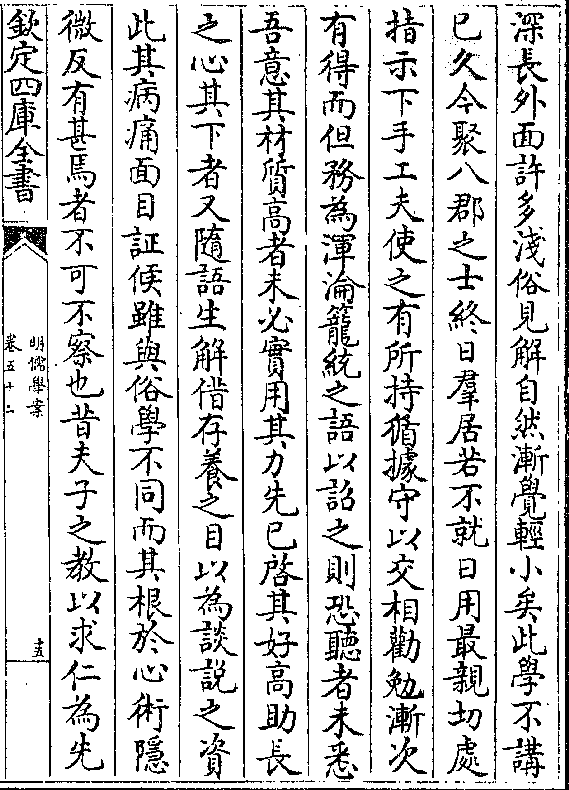 深長外面許多淺俗見解自然漸覺輕小矣此學不講
已久今聚八郡之士終日羣居若不就日用最親切處
指示下手工夫使之有所持循據守以交相勸勉漸次
有得而但務為渾淪籠統之語以詔之則恐聽者未悉
吾意其材質高者未必實用其力先已啓其好高助長
之心其下者又隨語生解借存養之目以為談說之資
此其病痛面目証候雖與俗學不同而其根於心術隱
微反有甚焉者不可不察也昔夫子之教以求仁為先
欽定四庫全書
明儒學案
卷五十二
十五